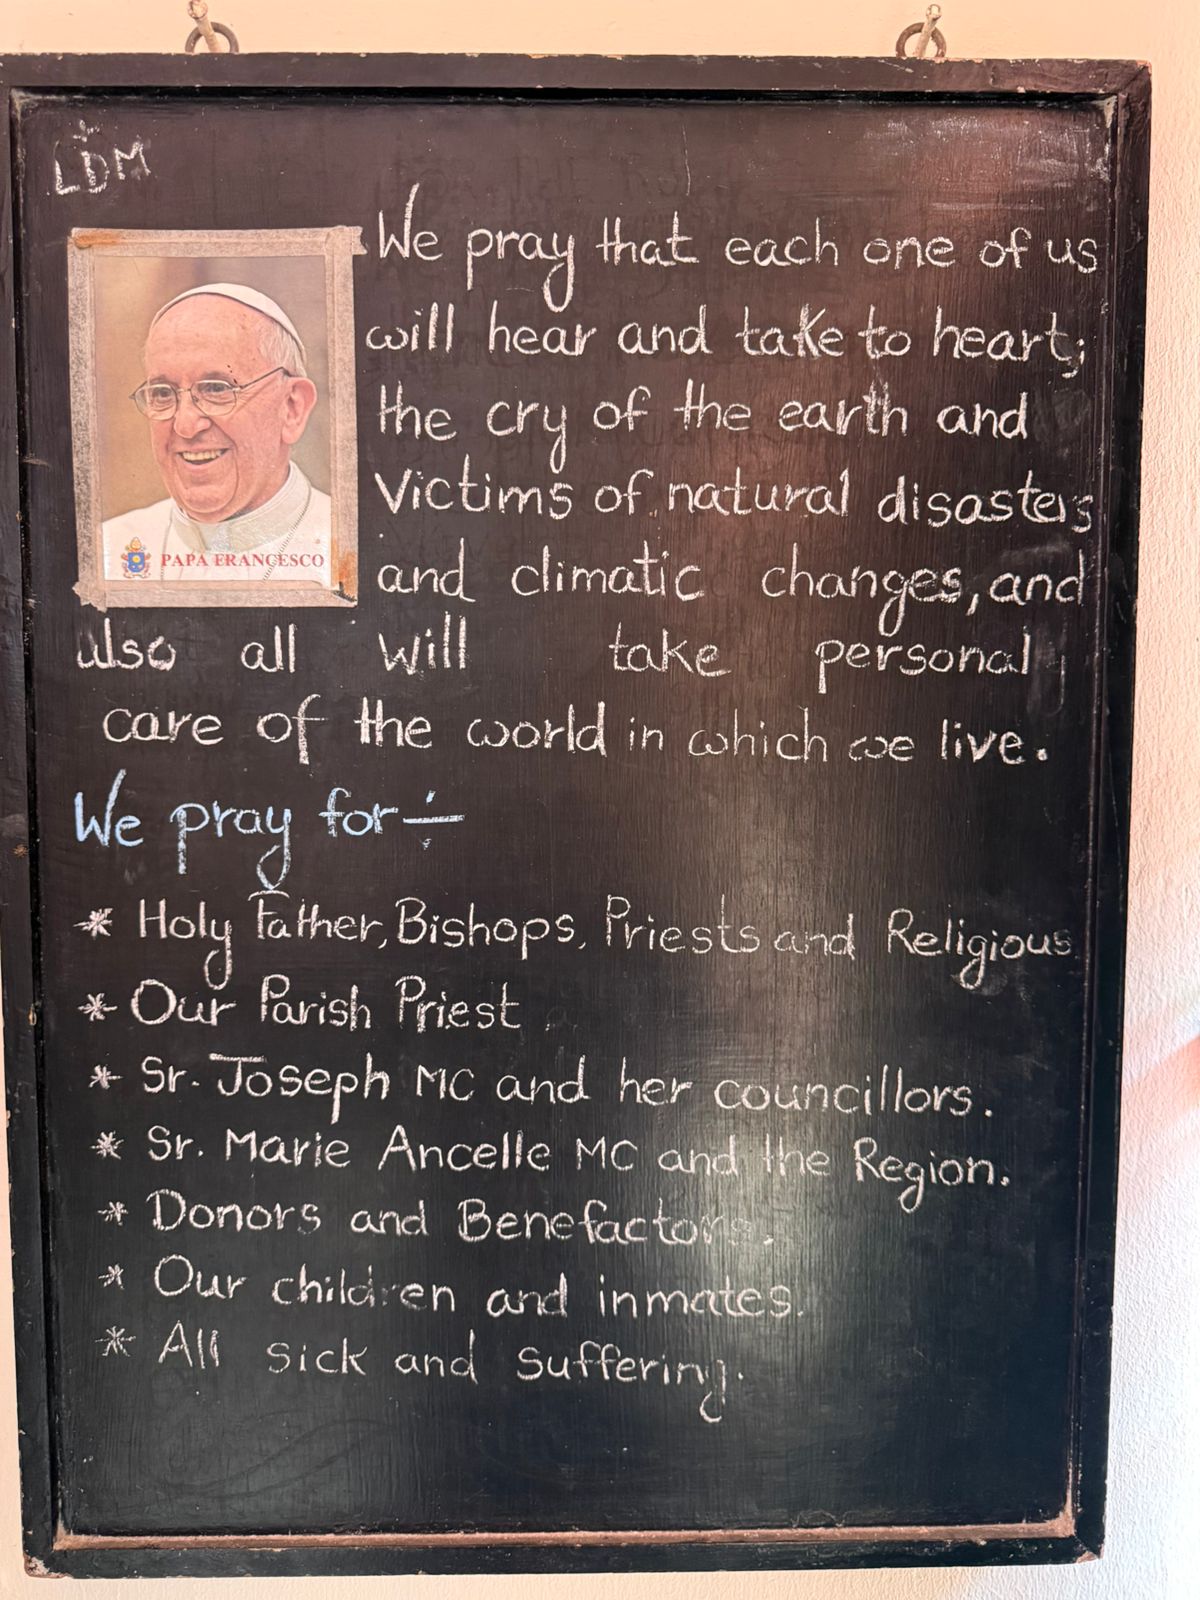 LDM
We pray that each one of us
will hear and take to heart;
the cry of the earth and
Victims of natural disasters
and climatic changes, and
also all will take personal
care of the world in which we live.
PAPA FRANCESCO
We pray for ÷
* Holy Father, Bishops, Priests and Religious
* Our Parish Priest
* Sr. Joseph MC and her councillors.
* Sr. Marie Ancelle MC and the Region.
* Donors and Benefactors.
* Our children and inmates.
* All sick and suffering.